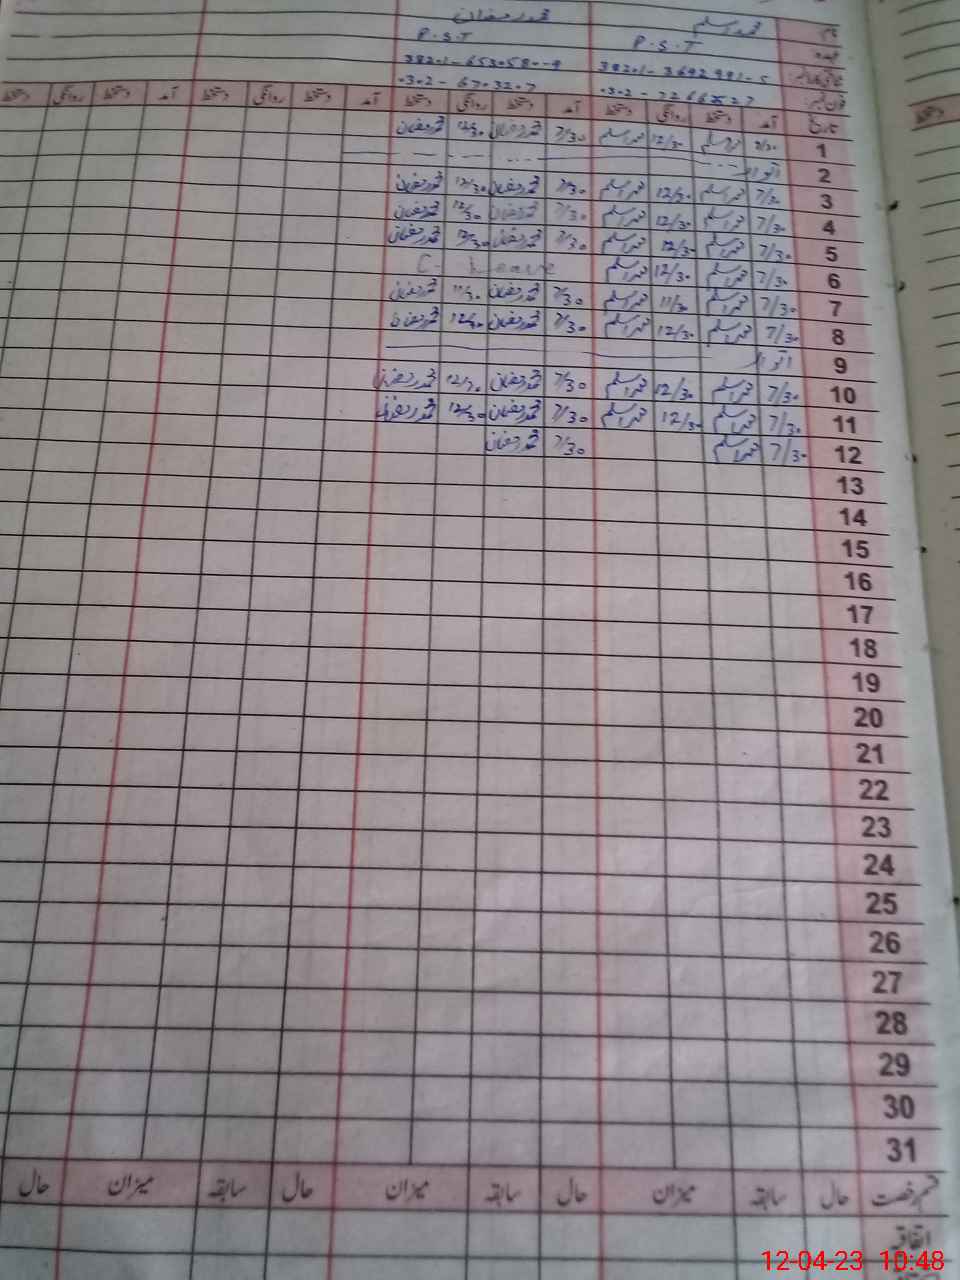 نام محمد اسلم محمد رمضان
عہدہ P.S.T P.S.T
38201-3692981-5 38201-6530580-9
فون نمبر 0302-7266527 0302-6703207
تاریخ آمد دستخط روانگی دستخط آمد دستخط روانگی دستخط آمد دستخط روانگی دستخط آمد دستخط روانگی دستخط
1 7/30 محمد اسلم 12/30 محمد اسلم 7/30 محمد رمضان 12/30 محمد رمضان
2 اتوار
3 7/30 محمد اسلم 12/30 محمد اسلم 7/30 محمد رمضان 12/30 محمد رمضان
4 7/30 محمد اسلم 12/30 محمد اسلم 7/30 محمد رمضان 12/30 محمد رمضان
5 7/30 محمد اسلم 12/30 محمد اسلم 7/30 محمد رمضان 12/30 محمد رمضان
6 7/30 محمد اسلم 12/30 محمد اسلم C. Leave
7 7/30 محمد اسلم 11/30 محمد اسلم 7/30 محمد رمضان 11/30 محمد رمضان
8 7/30 محمد اسلم 12/30 محمد اسلم 7/30 محمد رمضان 12/30 محمد رمضان
9 اتوار
10 7/30 محمد اسلم 12/30 محمد اسلم 7/30 محمد رمضان 12/30 محمد رمضان
11 7/30 محمد اسلم 12/30 محمد اسلم 7/30 محمد رمضان 12/30 محمد رمضان
12 7/30 محمد اسلم 7/30 محمد رمضان
13
14
15
16
17
18
19
20
21
22
23
24
25
26
27
28
29
30
31
قسم رخصت حال سابقہ میزان حال سابقہ میزان حال سابقہ میزان حال
اتفاقیہ
12-04-23 10:48